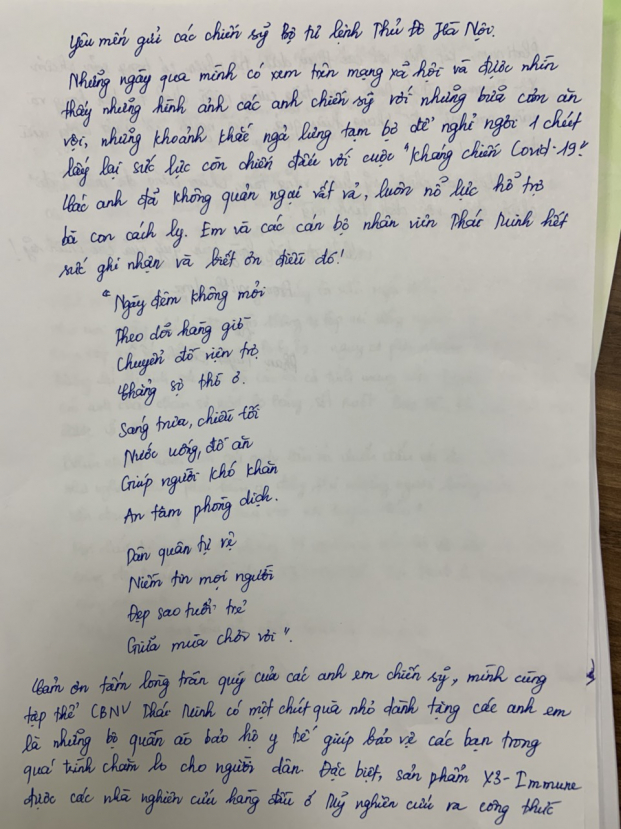 Yêu mến gửi các chiến sỹ Bộ tư lệnh Thủ Đô Hà Nội.
Những ngày qua mình có xem trên mạng xã hội và được nhìn
thấy những hình ảnh các anh chiến sỹ với những bữa cơm ăn
vội, những khoảnh khắc ngả lưng tạm bợ để nghỉ ngơi 1 chút
lấy lại sức lực còn chiến đấu với cuộc "kháng chiến Covid-19".
Các anh đã không quản ngại vất vả, luôn nỗ lực hỗ trợ
bà con cách ly. Em và các cán bộ nhân viên Thái Minh hết
sức ghi nhận và biết ơn điều đó!
"Ngày đêm không mỏi
Theo dõi hàng giờ
Chuyển đồ viện trợ
Chẳng sợ thở ơ.
Sáng trưa, chiều tối
Nước uống, đồ ăn
Giúp người khó khăn
An tâm phòng dịch.
Dân quân tự vệ
Niềm tin mọi người
Đẹp sao tuổi trẻ
Giữa mùa chơi vơi".
Cảm ơn tấm lòng trân quý của các anh em chiến sỹ, mình cùng
tập thể CBNV Thái Minh có một chút quà nhỏ dành tặng các anh em
là những bộ quần áo bảo hộ y tế giúp bảo vệ các bạn trong
quá trình chăm lo cho người dân. Đặc biệt, sản phẩm X3-Immune
được các nhà nghiên cứu hàng đầu ở Mỹ nghiên cứu ra công thức